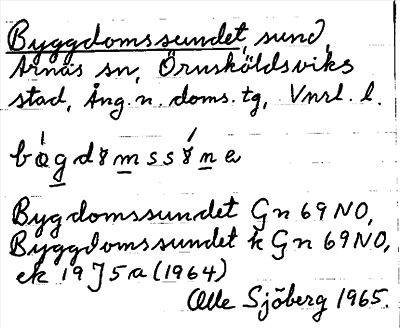 Byggdomssundet, sund,
Arnäs sn, Örnsköldsviks
stad, Ång. n. doms. tg, Vnrl. l.
Bygdomssundet Gn 69 NO,
Byggdomssundet k Gn 69 NO,
ek 19 J 5 a (1964)
Olle Sjöberg 1965.